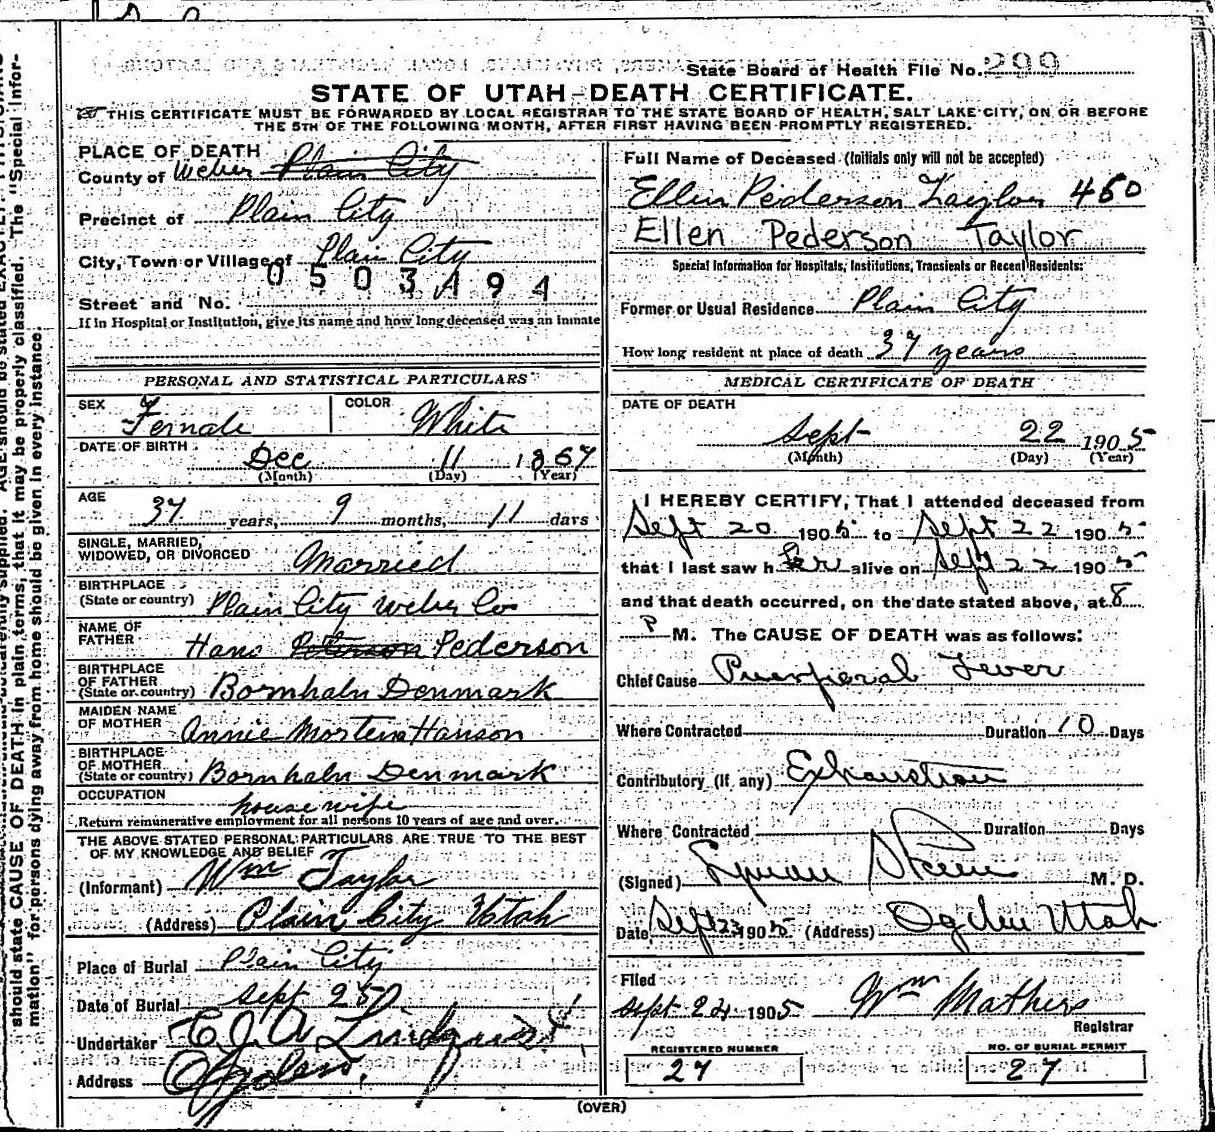 State Board of Health File No. 299
STATE OF UTAH-DEATH CERTIFICATE.
THIS CERTIFICATE MUST BE FORWARDED BY LOCAL REGISTRAR TO THE STATE BOARD OF HEALTH, SALT LAKE CITY, ON OR BEFORE
THE 5TH OF THE FOLLOWING MONTH, AFTER FIRST HAVING BEEN PROMPTLY REGISTERED.
PLACE OF DEATH
County of Weber Plain City
Precinct of Plain City
City, Town or Village of Plain City
0503494
Street and No.
If in Hospital or Institution, give its name and how long deceased was an inmate
PERSONAL AND STATISTICAL PARTICULARS
SEX Female COLOR White
DATE OF BIRTH Dec 11 1867
(Month) (Day) (Year)
AGE 37 years, 9 months, 11 days
SINGLE, MARRIED,
WIDOWED, OR DIVORCED Married
BIRTHPLACE
(State or country) Plain City Weber Co
NAME OF
FATHER Hans Peterson Pederson
BIRTHPLACE
OF FATHER
(State or country) Bornhaln Denmark
MAIDEN NAME
OF MOTHER Annie Mortens Hanson
BIRTHPLACE
OF MOTHER
(State or country) Bornhaln Denmark
OCCUPATION housewife
Return remunerative employment for all persons 10 years of age and over.
THE ABOVE STATED PERSONAL PARTICULARS ARE TRUE TO THE BEST
OF MY KNOWLEDGE AND BELIEF
(Informant) Wm Taylor
(Address) Plain City Utah
Place of Burial Plain City
Date of Burial Sept 25
Undertaker Lindquist
Address Ogden.
Full Name of Deceased (Initials only will not be accepted)
Ellen Pederson Taylor 460
Ellen Pederson Taylor
Special Information for Hospitals, Institutions, Transients or Recent Residents:
Former or Usual Residence Plain City
How long resident at place of death 37 years
MEDICAL CERTIFICATE OF DEATH
DATE OF DEATH
Sept 22 1905
(Month) (Day) (Year)
I HEREBY CERTIFY, That I attended deceased from
Sept 20 1905 to Sept 22 1905
that I last saw her alive on Sept 22 1905
and that death occurred, on the date stated above, at 8
P M. The CAUSE OF DEATH was as follows:
Chief Cause Puerperal Fever
Where Contracted Duration 10 Days
Contributory (if any) Exhaustion
Where Contracted Duration Days
(Signed) Lyman Skeen M. D.
Date Sept 23 1905 (Address) Ogden Utah
Filed
Sept 24 1905 Wm Mathers
Registrar
REGISTERED NUMBER
27
NO. OF BURIAL PERMIT
27
(OVER)
should state CAUSE OF DEATH in plain terms, that it may be properly classified. The "Special Infor-
mation" for persons dying away from home should be given in every instance.